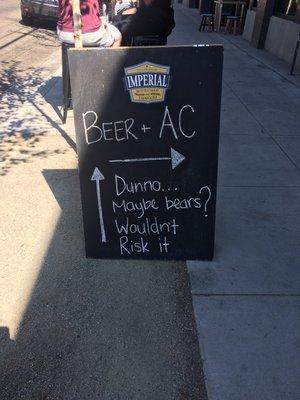 IMPERIAL
BEER + AC
Dunno...
Maybe bears?
Wouldn't
Risk it